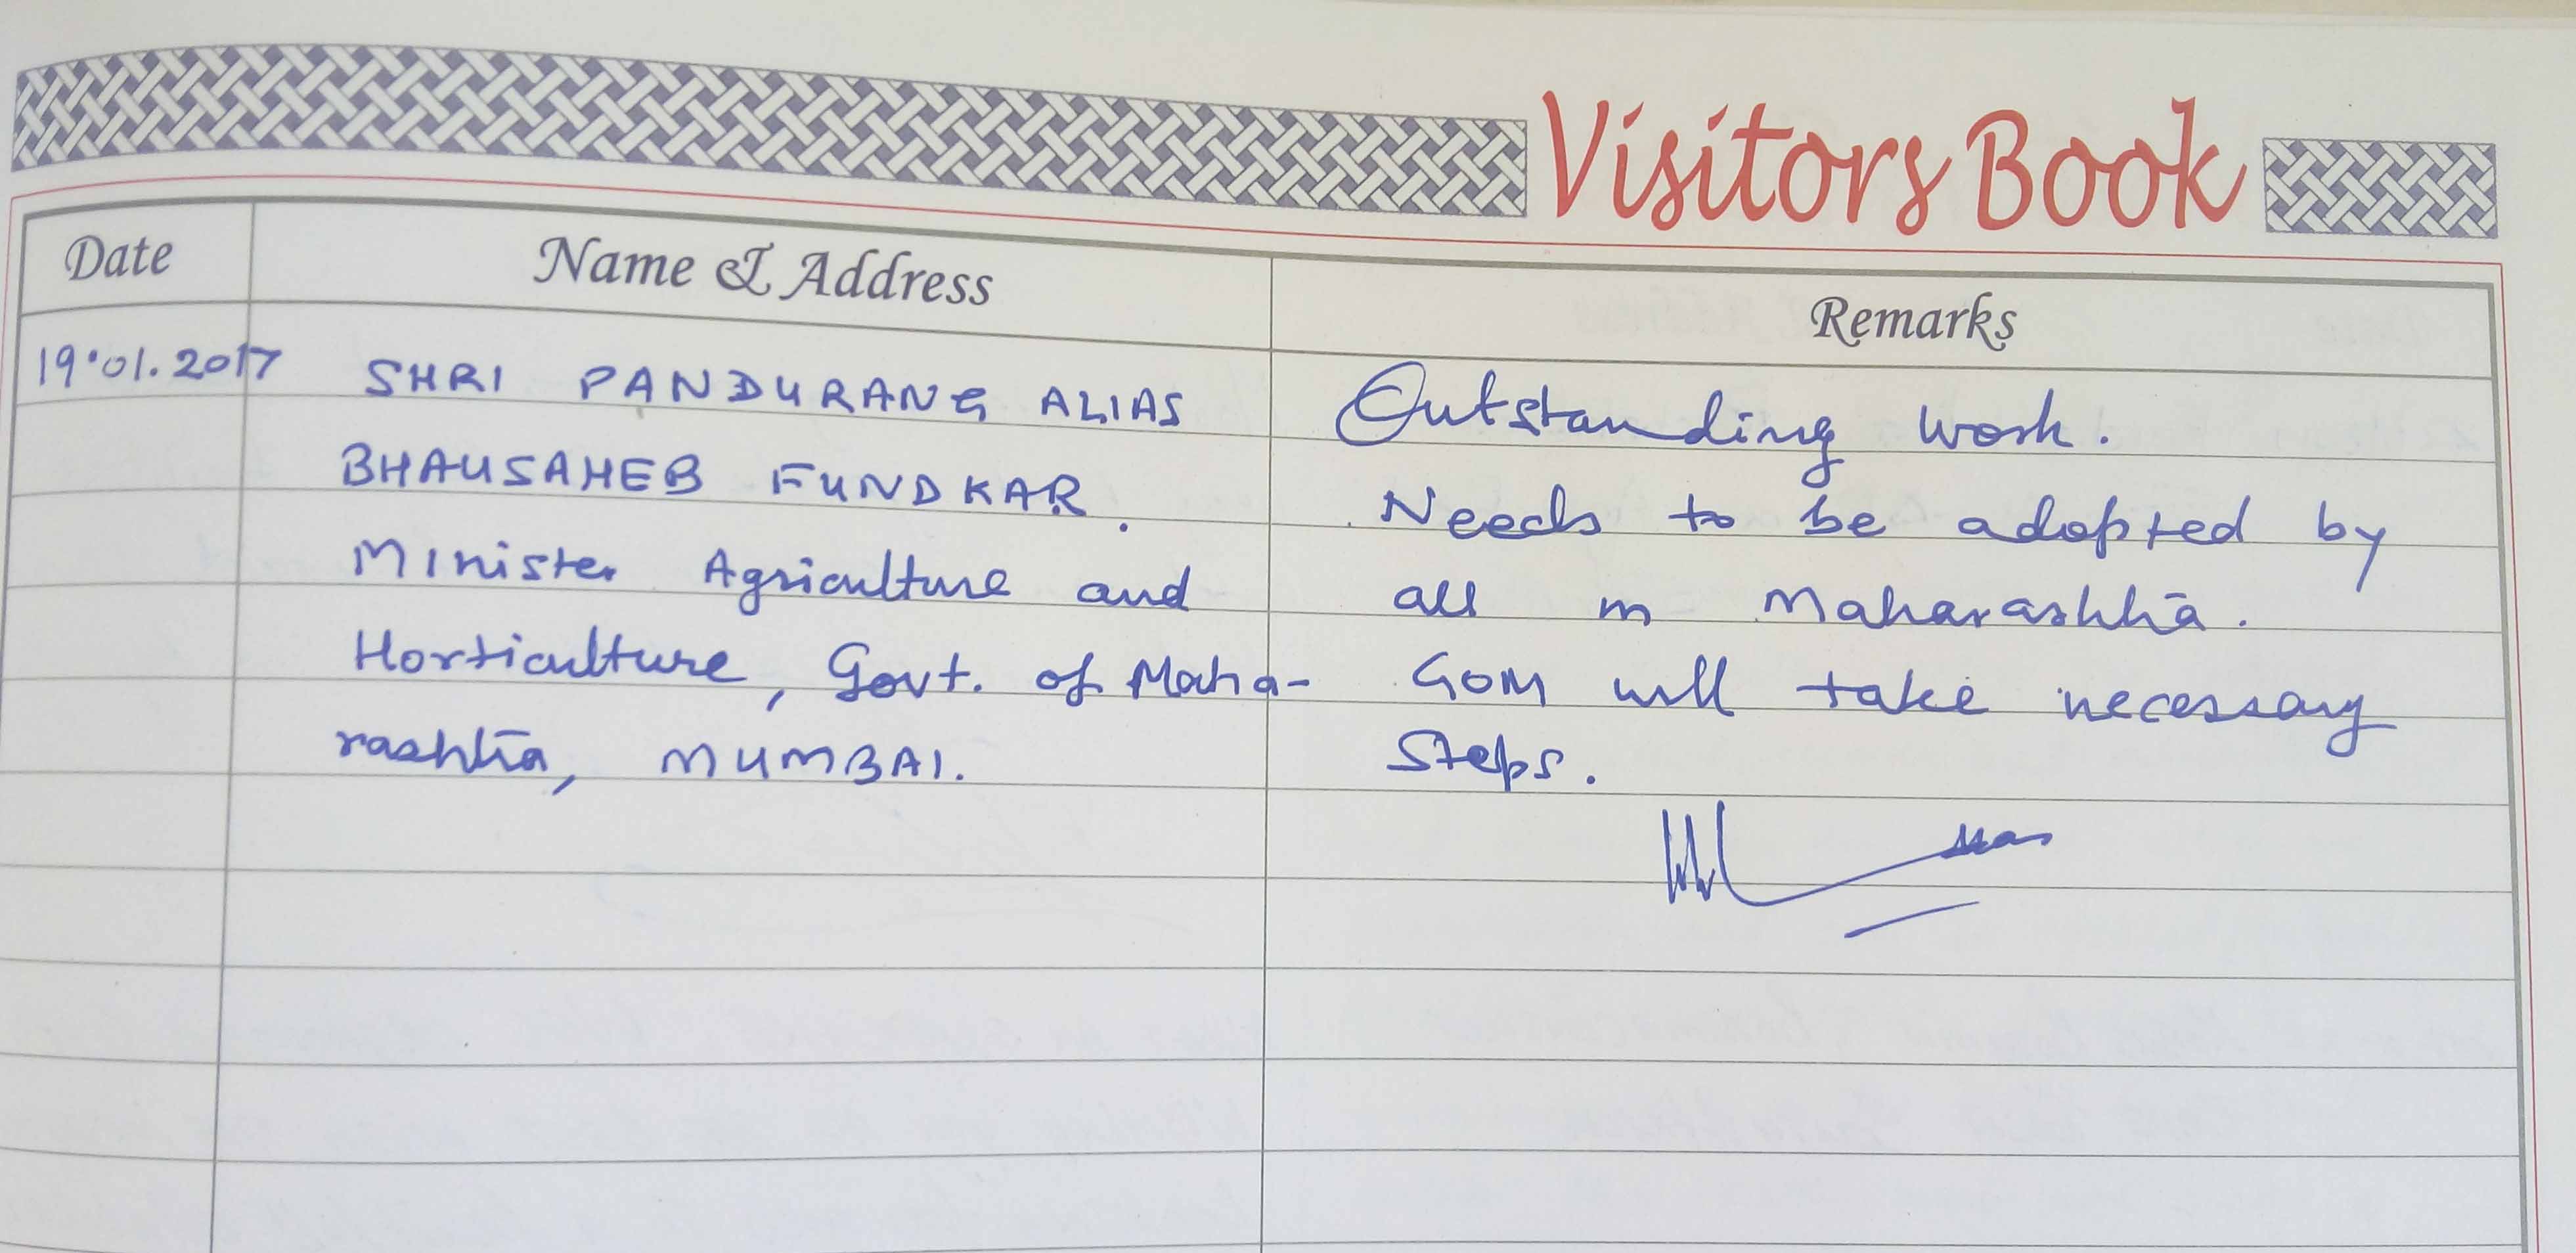 Visitors Book
Date Name & Address Remarks
19.01.2017 SHRI PANDURANG ALIAS
BHAUSAHEB FUNDKAR.
Minister Agriculture and
Horticulture, Govt. of Maha-
rashtra, MUMBAI.
Outstanding work.
Needs to be adopted by
all in Maharashtra.
GOM will take necessary
Steps.